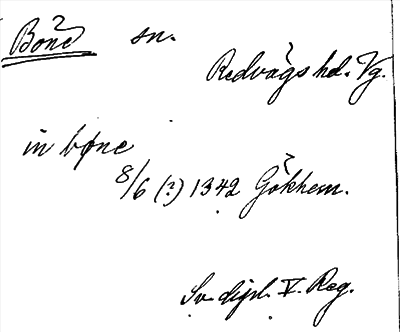 Bone sn.
Redvägs hd. Vg.
in bøne
8/6 (?) 1342 Gökhem.
Sv. dipl. V. Reg.